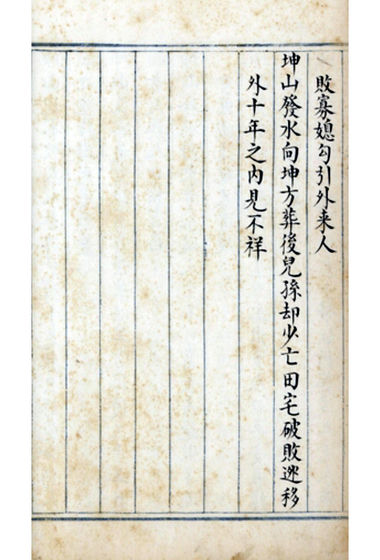 敗寡媳勾引外来人
坤山發水向坤方葬後兒孫却少亡田宅破敗逃移
外十年之内見不祥